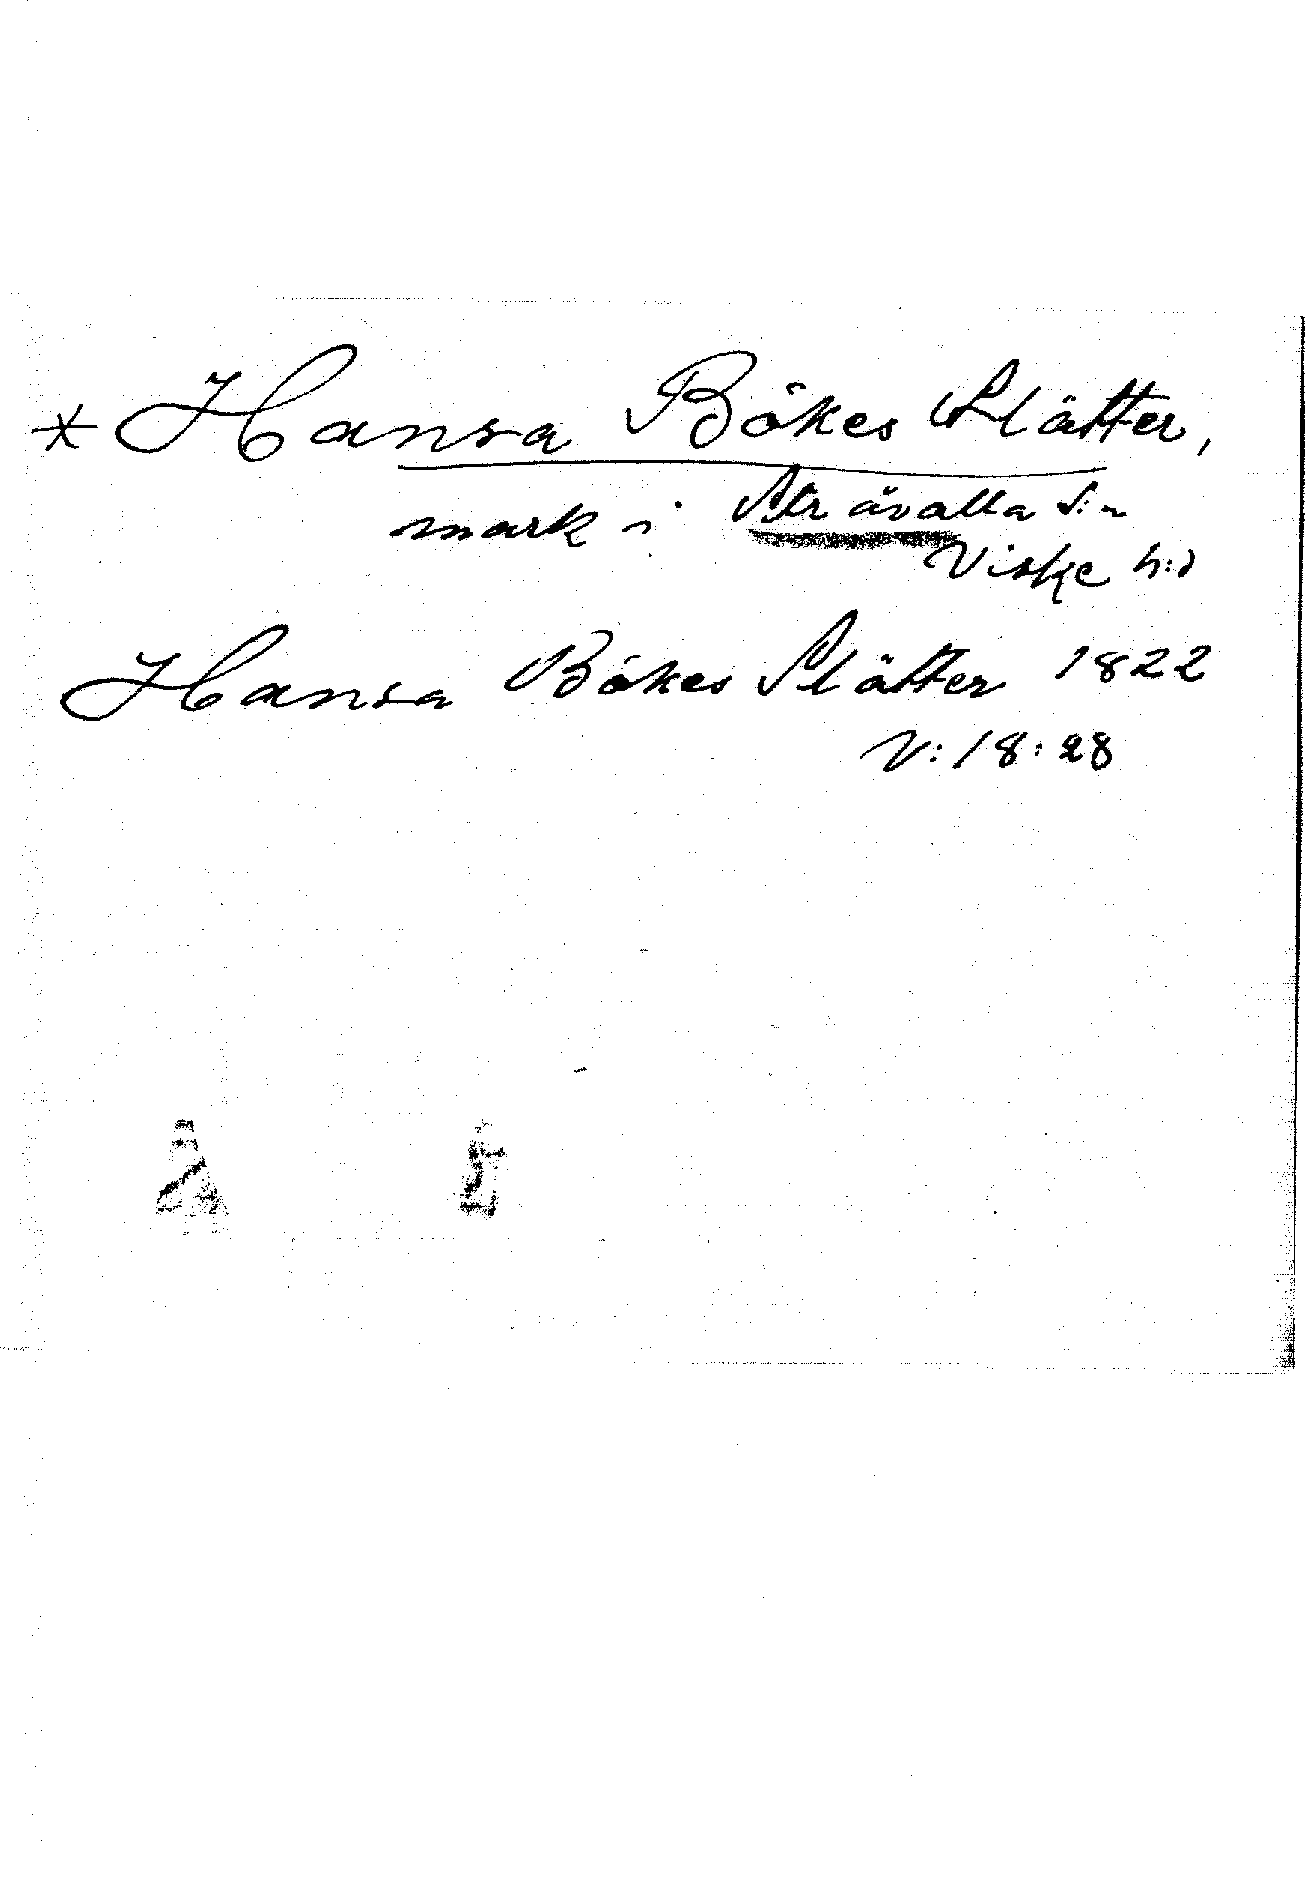 * Hansa Bökes Slätter,
mark i Stråvalla s:n
Viske h:d
Hansa Bökes Slätter 1822
V: 18: 28